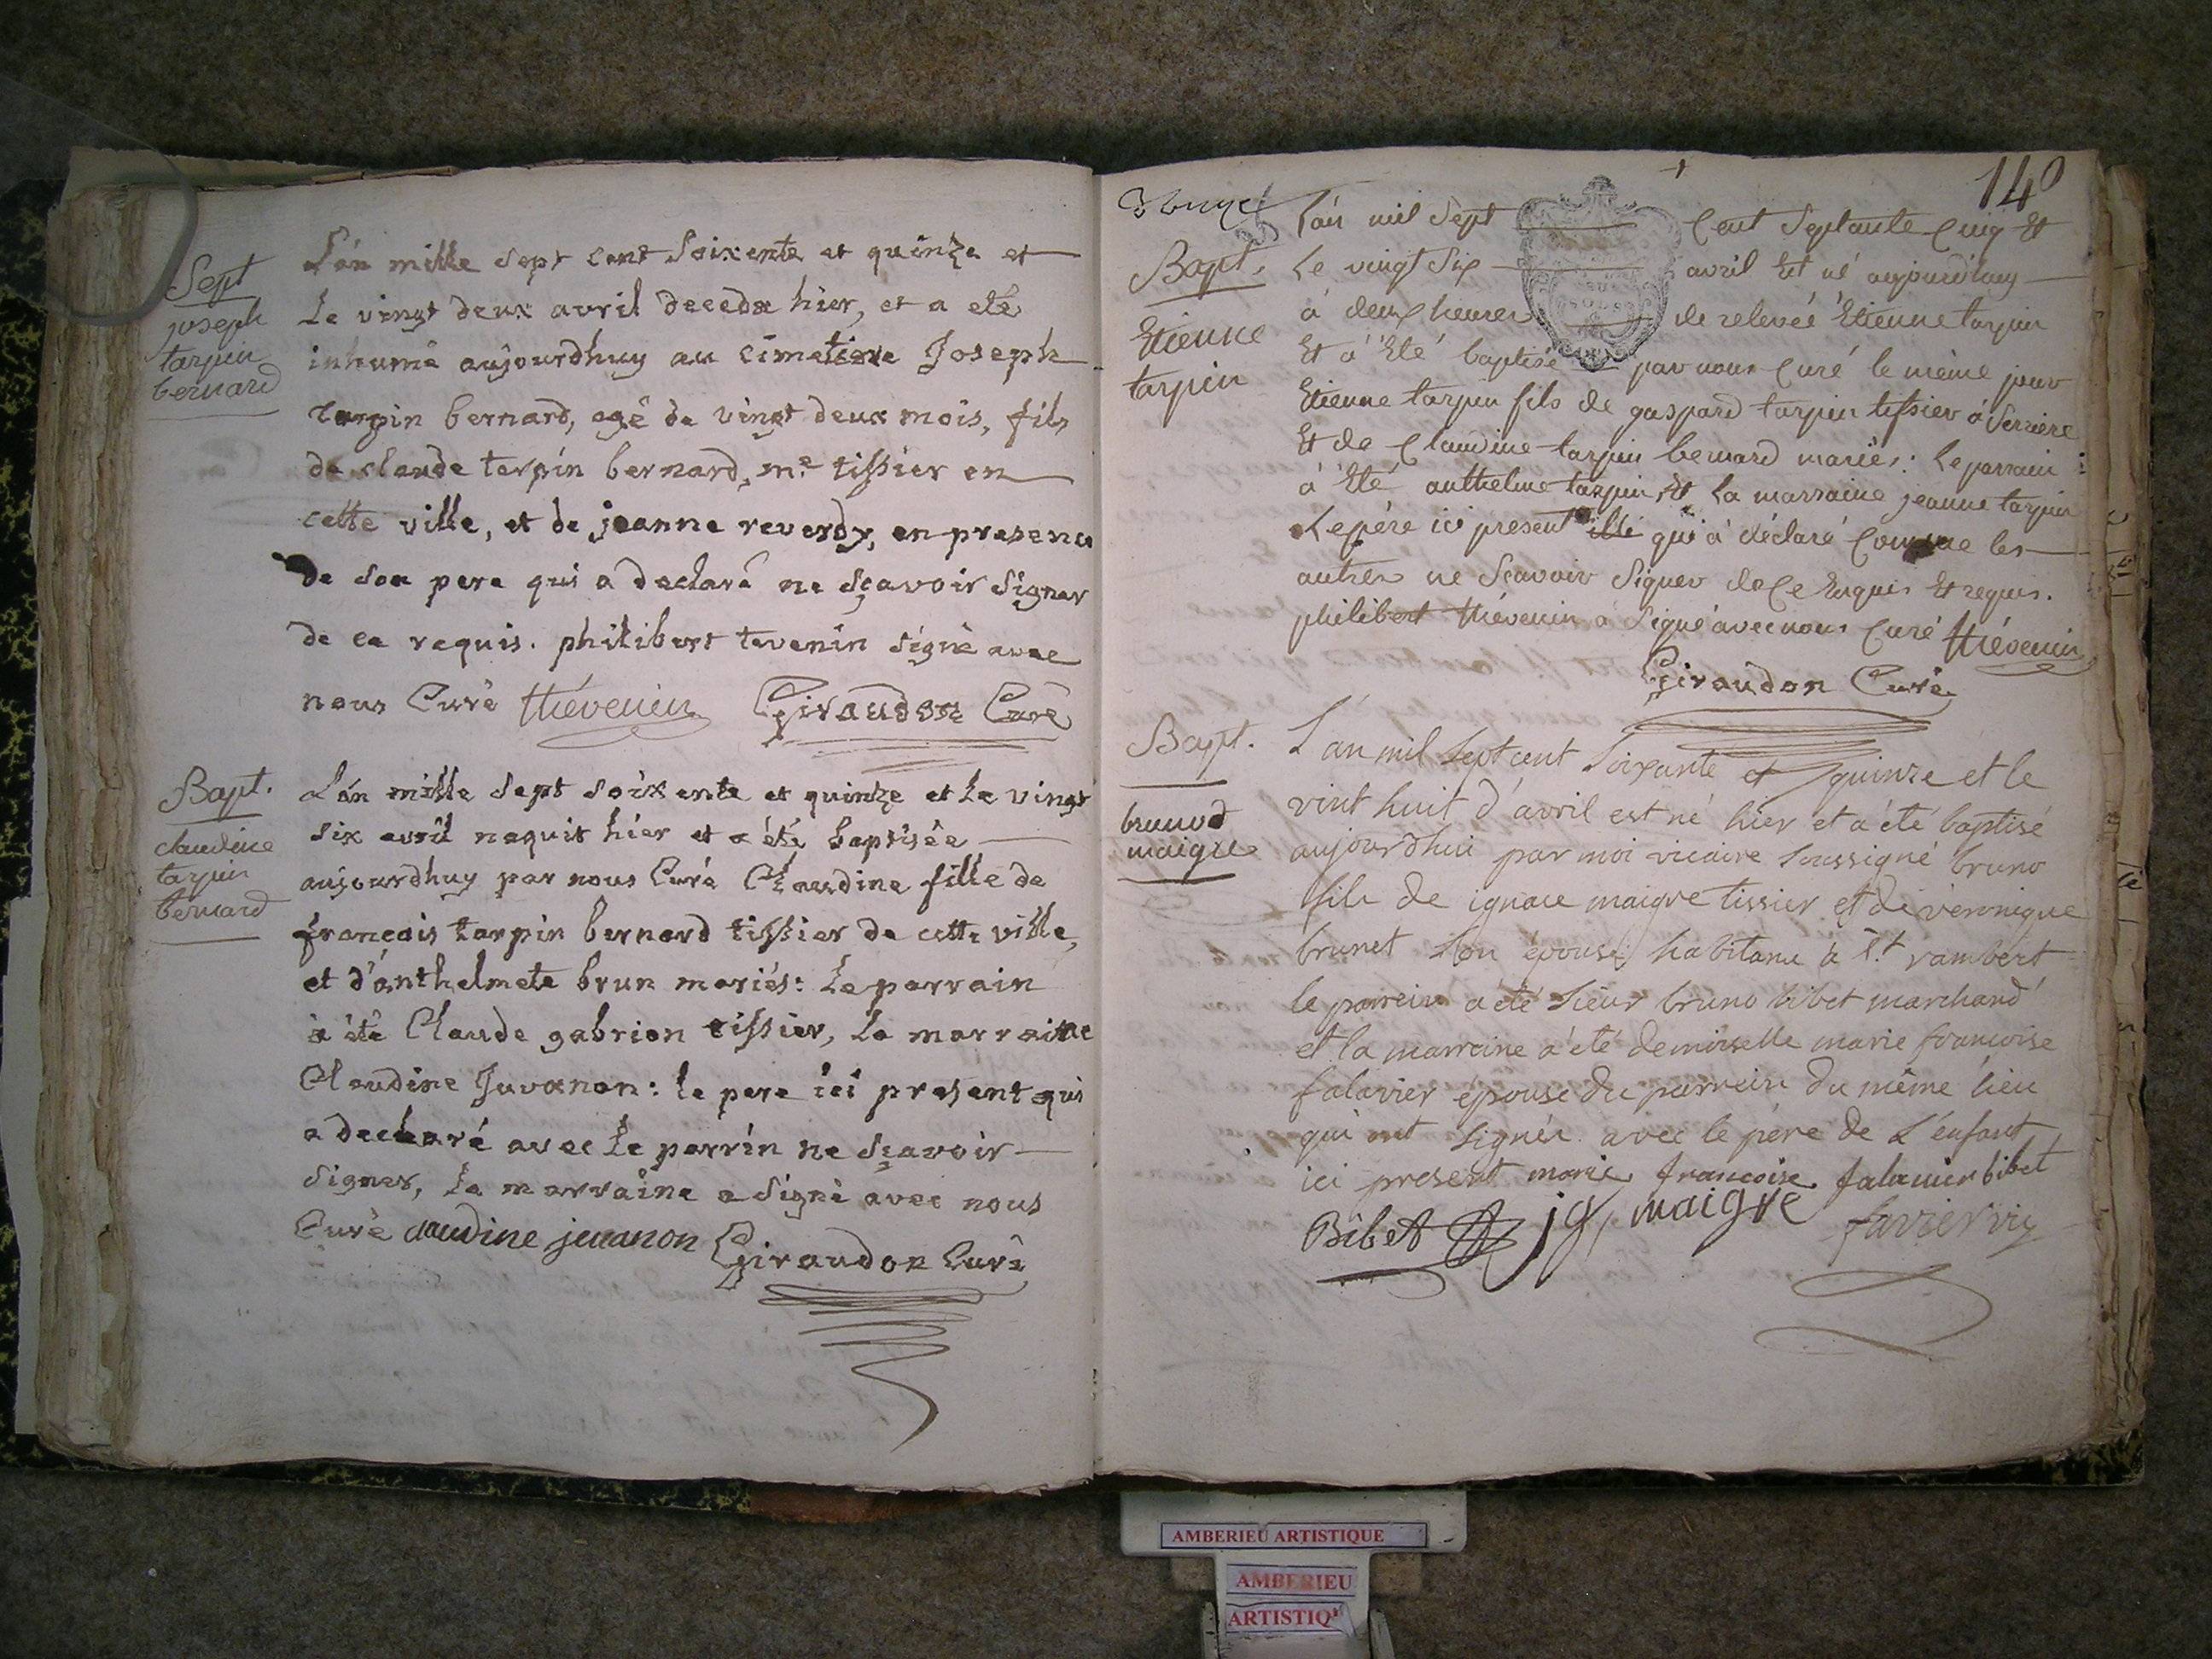 Sept
joseph
tarpin
bernard
L'án mille sept cent soixente et quinze et
Le vingt deux avril deceda hier, et a eté
inhumé aujourdhuy au cimetiere Joseph
tarpin bernard, agé de vingt deux mois, fils
de claude tarpin bernard, me tissier en
cette ville, et de jeanne reverdy, en presence
de son pere qui a declaré ne sçavoir signer
de ce requis. philibert tevenin signé avec
nous Curé thévenin Giraudon Curé
Bapt.
claudine
tarpin
bernard
L'án mille sept soixente et quinze et le vingt
six avril naquit hier et a été baptisée
aujourdhuy par nous Curé Claudine fille de
francois tarpin bernard tissier de cette ville,
et d'anthelmete brun mariés: Le parrain
à été Claude gabrion tissier, La marraine
Claudine Juvanon: le pere ici present qui
a declaré avec le parrin ne sçavoir
signer, La marraine a signé avec nous
Curé claudine jeuanon Giraudon Curé
140
Bapt.
Etienne
tarpin
L'án mil sept cent septante cinq Et
Le vingt six avril Est né aujourd'huy
à deux heures de relevée Etienne tarpin
Et à Eté baptisé par nous Curé le même jour
Etienne tarpin fils de gaspard tarpin tissier à Serriere
Et de Claudine tarpin bernard mariés: Le parrain
à Eté anthelme tarpin, Et La marraine jeanne tarpin
Le pére ici present illi qui à déclaré Comme les
autres ne Scavoir Signer de Ce Enquis Et requis.
philibert thévenin à Signé avec nous Curé thévenin
Giraudon Curé
Bapt.
brunod
maigre
L'án mil sept cent soixante et quinze et le
vint huit d'avril est né hier et a été baptisé
aujourdhui par moi vicaire soussigné bruno
fils de ignace maigre tissier et de veronique
brunet son épouse habitans à St rambert
le parrein a été sieur bruno bibet marchand
et la marreine a été demoiselle marie francoise
falavier épouse du parrein du même lieu
qui ont signés avec le pére de L'enfant
ici present marie francoise falauier bibet
Bibet ig, maigre favier vic
AMBERIEU ARTISTIQUE
AMBERIEU
ARTISTIQ